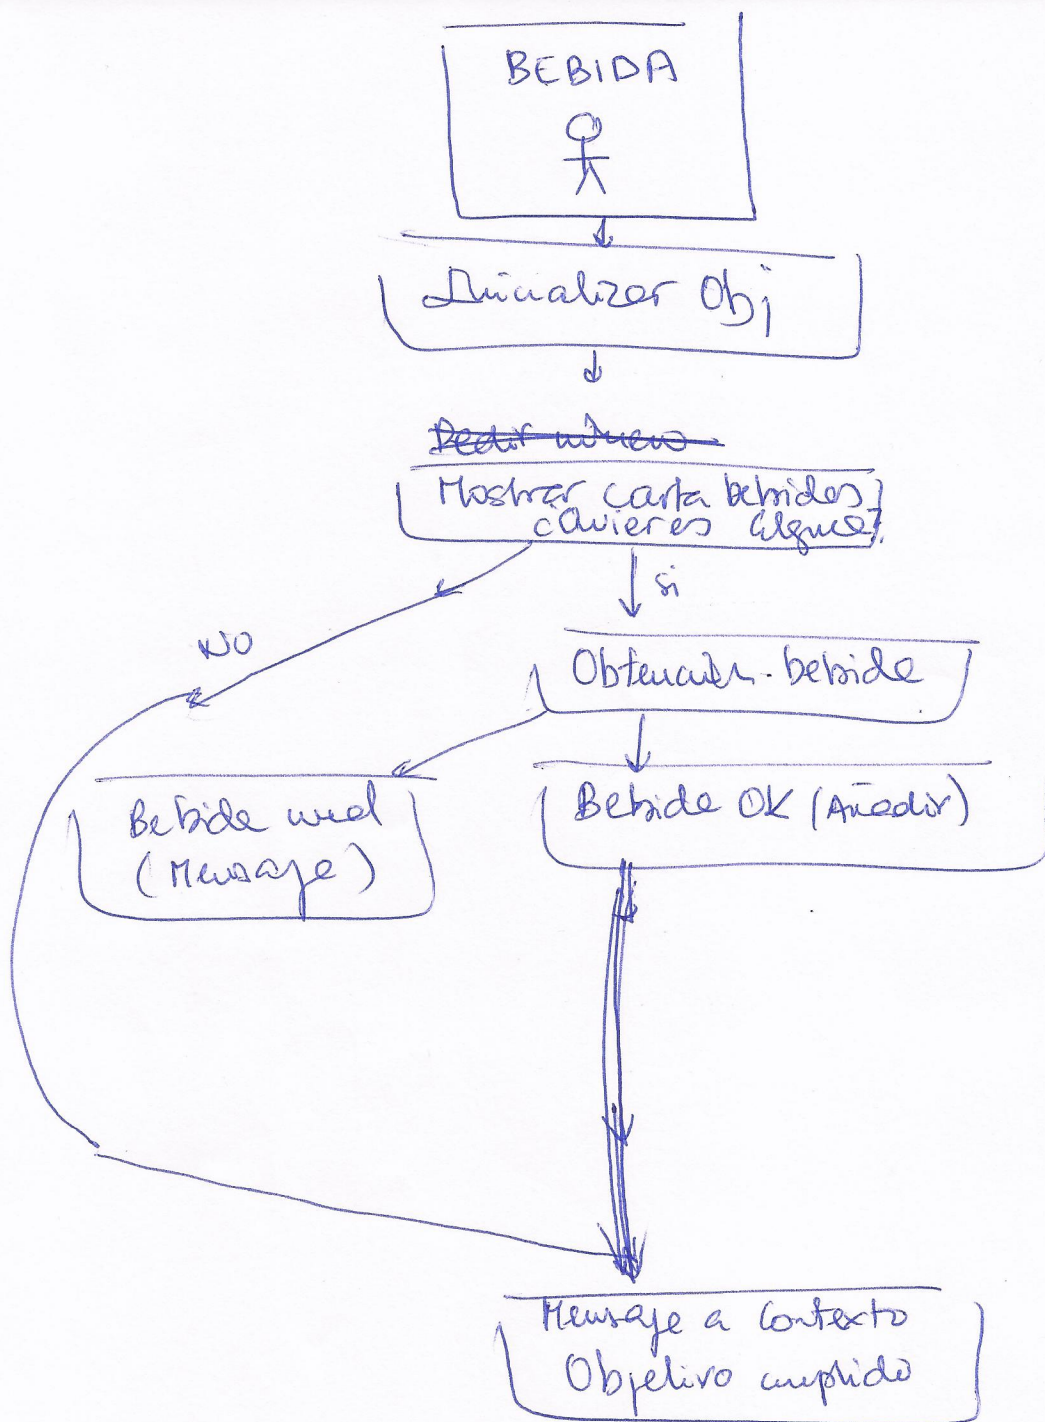 BEBIDA
Inicializar Obj
Pedir número
Mostrar carta bebidas
¿Quieres alguna?
si
NO
Obtención bebida
Bebida mal
(Mensaje)
Bebida OK (Añadir)
Mensaje a Contexto
Objetivo cumplido